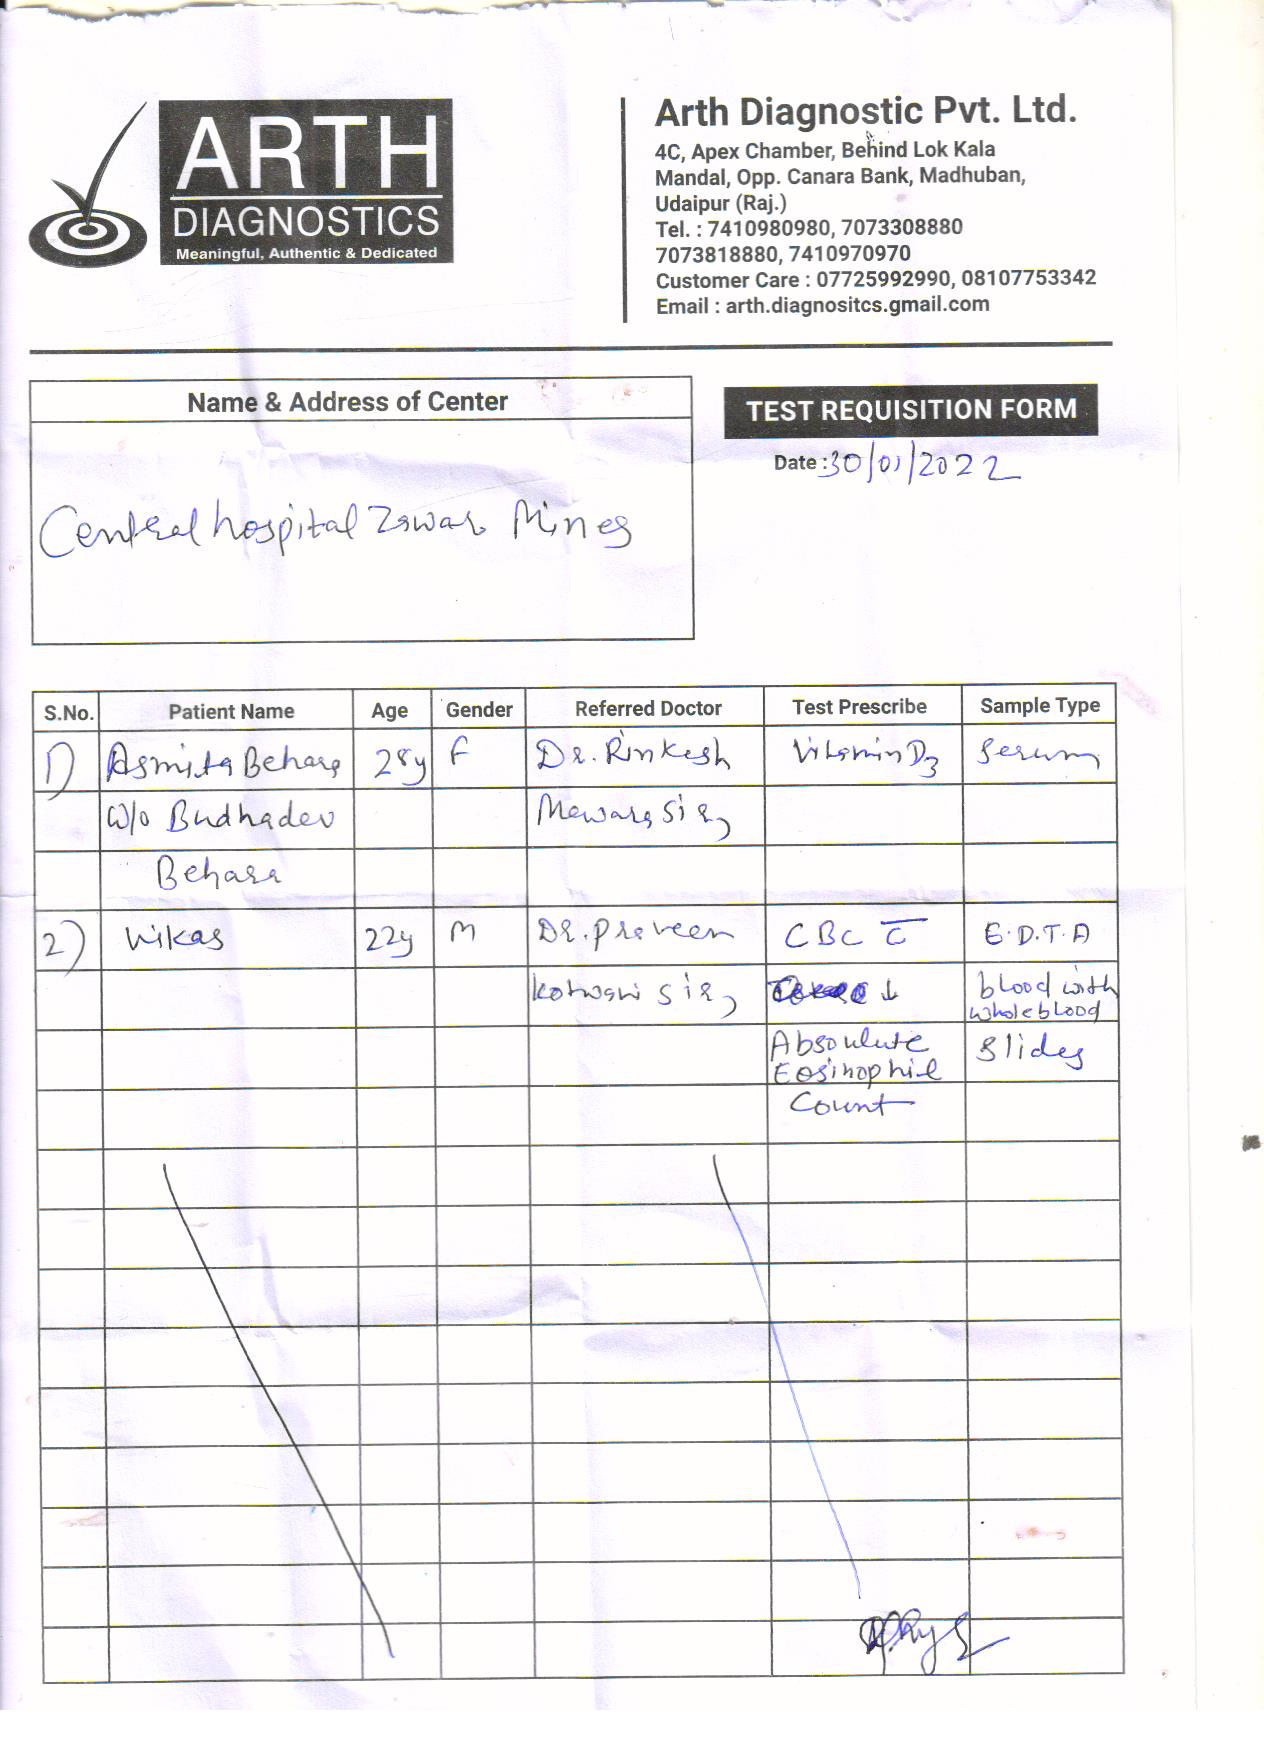 ARTH
DIAGNOSTICS
Meaningful, Authentic & Dedicated
Arth Diagnostic Pvt. Ltd.
4C, Apex Chamber, Behind Lok Kala
Mandal, Opp. Canara Bank, Madhuban,
Udaipur (Raj.)
Tel. : 7410980980, 7073308880
7073818880, 7410970970
Customer Care : 07725992990, 08107753342
Email : arth.diagnositcs.gmail.com
Name & Address of Center
TEST REQUISITION FORM
Date : 30/01/2022
Central hospital Zawar Mines
S.No. Patient Name Age Gender Referred Doctor Test Prescribe Sample Type
1) Asmita Behara 28y F Dr. Rinkesh Vitamin D3 Serum
W/o Budhadev Mewara Sir
Behara
2) Vikas 22y M Dr. Praveen CBC c̅ E.D.T.A
Kotwani Sir ↓ blood with
whole blood
Absoulute Slides
Eosinophil
Count